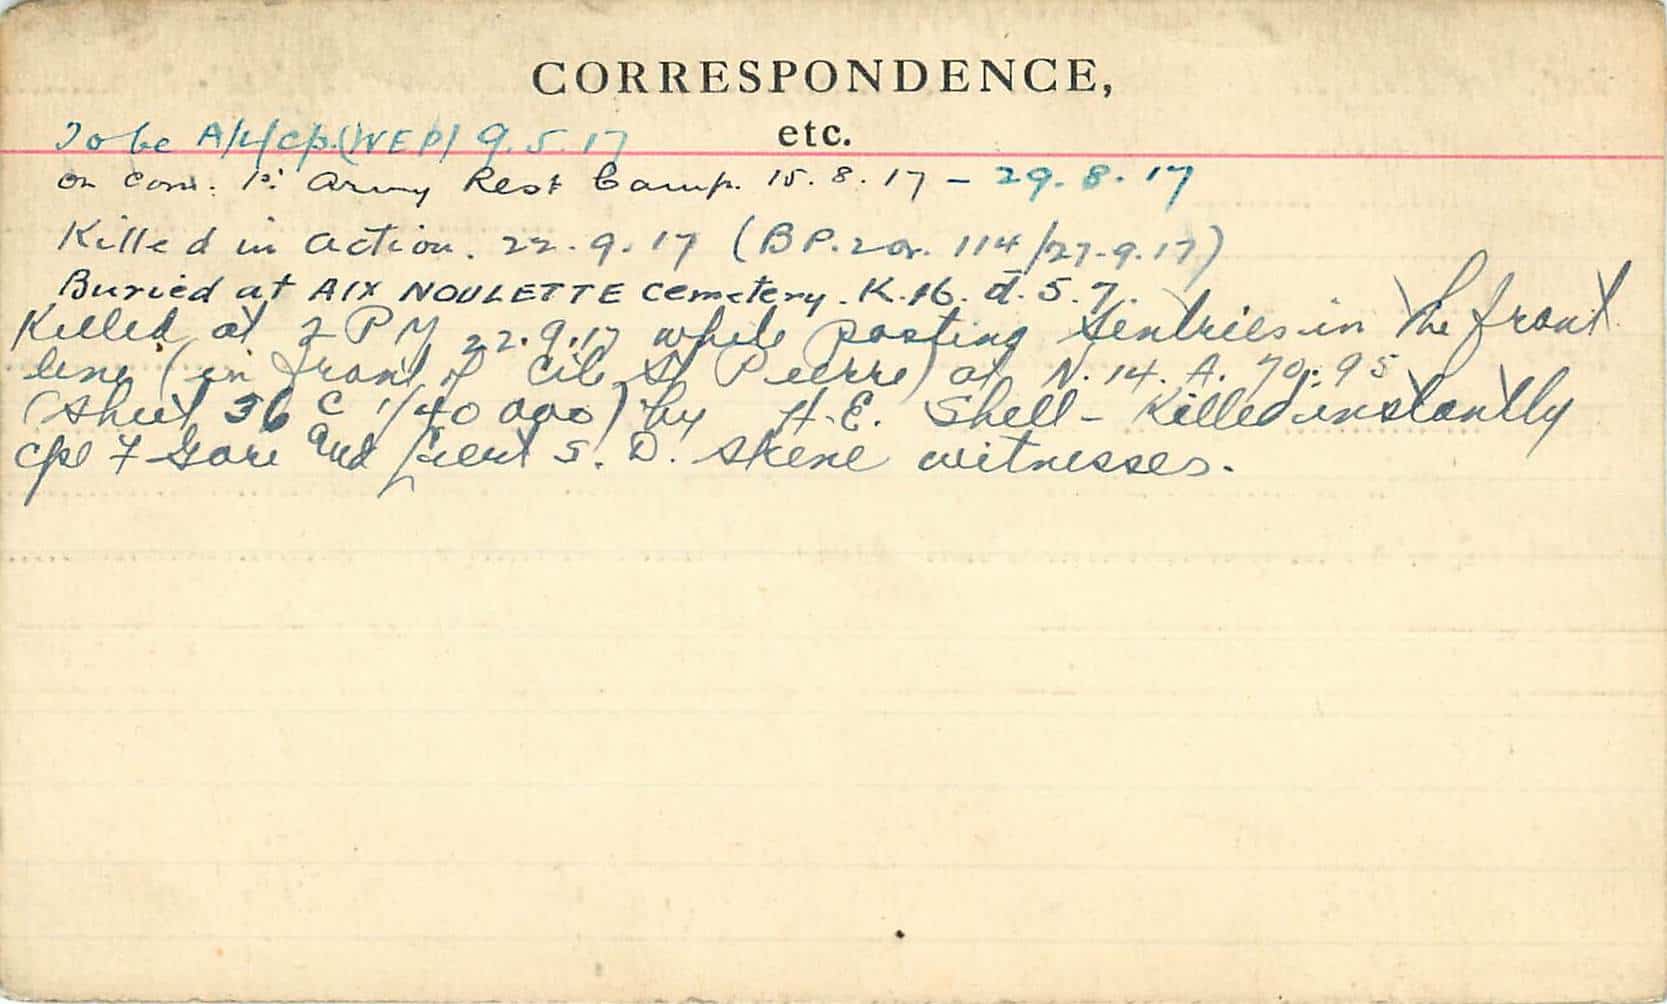 CORRESPONDENCE,
etc.
To be A/L/Cp. (WEP) 9.5.17
on com. 1st Army Rest Camp. 15.8.17 - 29.8.17
Killed in action. 22.9.17 (B.P. 2 or. 114/27.9.17)
Buried at AIX NOULETTE Cemetery. K.16. d. 5.7.
Killed at 2 PM 22.9.17 while posting sentries in the front
line (in front of Cite St Pierre) at N.14.A. 70:95
(Sheet 36 C 1/40 000) by H.E. Shell - Killed instantly
Cpl F Gore and Lieut S. D. Skene witnesses.